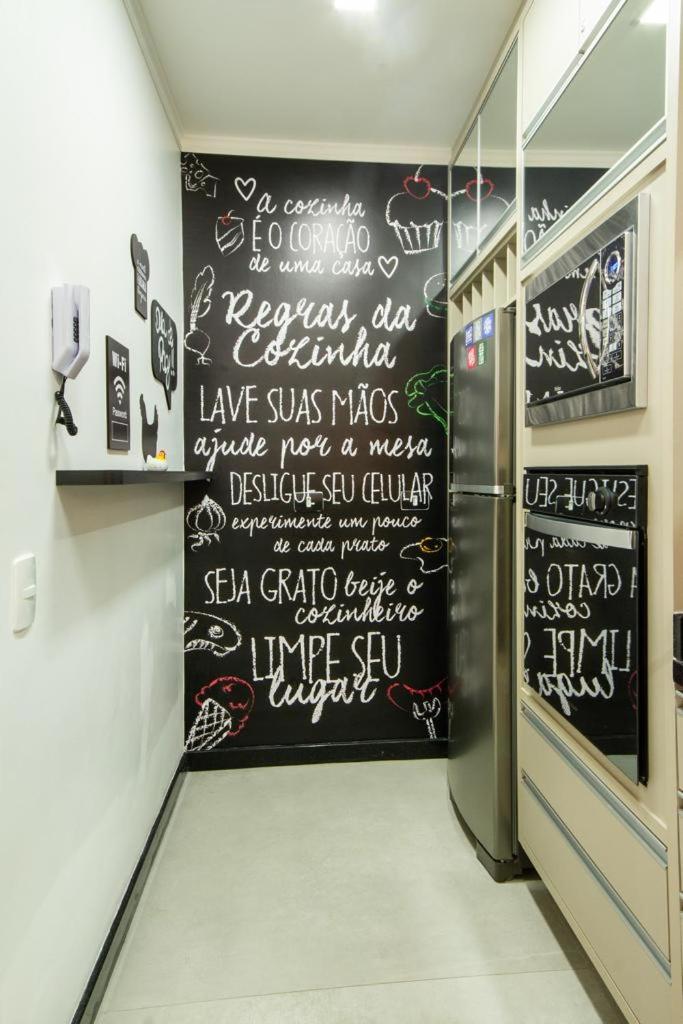 a cozinha
É O CORAÇÃO
de uma casa
Regras da
Cozinha
LAVE SUAS MÃOS
ajude por a mesa
DESLIGUE SEU CELULAR
experimente um pouco
de cada prato
SEJA GRATO beije o
cozinheiro
LIMPE SEU
lugar
Wi-Fi
Password